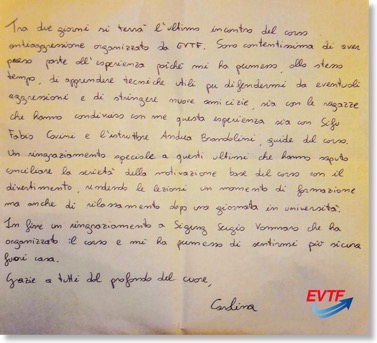 Tra due giorni si terrà l'ultimo incontro del corso
antiaggressione organizzato da EVTF. Sono contentissima di aver
preso parte all'esperienza poiché mi ha permesso, allo stesso
tempo, di apprendere tecniche utili per difendermi da eventuali
aggressioni e di stringere nuove amicizie, sia con le ragazze
che hanno condiviso con me questa esperienza sia con Sifu
Fabio Cosimi e l'istruttore Andrea Brandolini, guide del corso.
Un ringraziamento speciale a questi ultimi che hanno saputo
conciliare la serietà della motivazione base del corso con il
divertimento, rendendo le lezioni un momento di formazione
ma anche di rilassamento dopo una giornata in università.
In fine un ringraziamento a Sigung Sergio che ha
organizzato il corso e mi ha permesso di sentirmi più sicura
fuori casa.
Grazie a tutti dal profondo del cuore,
Carlina
EVTF